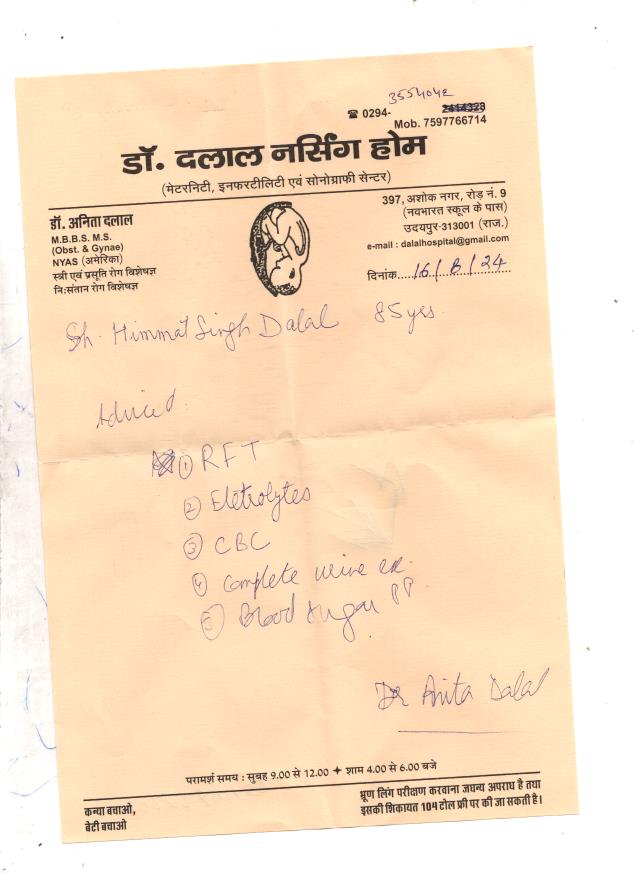 3554042
☎ 0294-
Mob. 7597766714
डॉ. दलाल नर्सिंग होम
(मेटरनिटी, इनफरटीलिटी एवं सोनोग्राफी सेन्टर)
डॉ. अनिता दलाल
M.B.B.S. M.S.
(Obst. & Gynae)
NYAS (अमेरिका)
स्त्री एवं प्रसूति रोग विशेषज्ञ
नि:संतान रोग विशेषज्ञ
397, अशोक नगर, रोड़ नं. 9
(नवभारत स्कूल के पास)
उदयपुर-313001 (राज.)
e-mail : dalalhospital@gmail.com
दिनांक....16/8/24
Sh. Himmat Singh Dalal 85 yrs.
Adviced
① RFT
② Eletrolytes
③ CBC
④ Complete urine ex.
⑤ Blood sugar PP.
Dr Anita Dalal
परामर्श समय : सुबह 9.00 से 12.00 ✦ शाम 4.00 से 6.00 बजे
कन्या बचाओ,
बेटी बचाओ
भ्रूण लिंग परीक्षण करवाना जघन्य अपराध है तथा
इसकी शिकायत 104 टोल फ्री पर की जा सकती है।